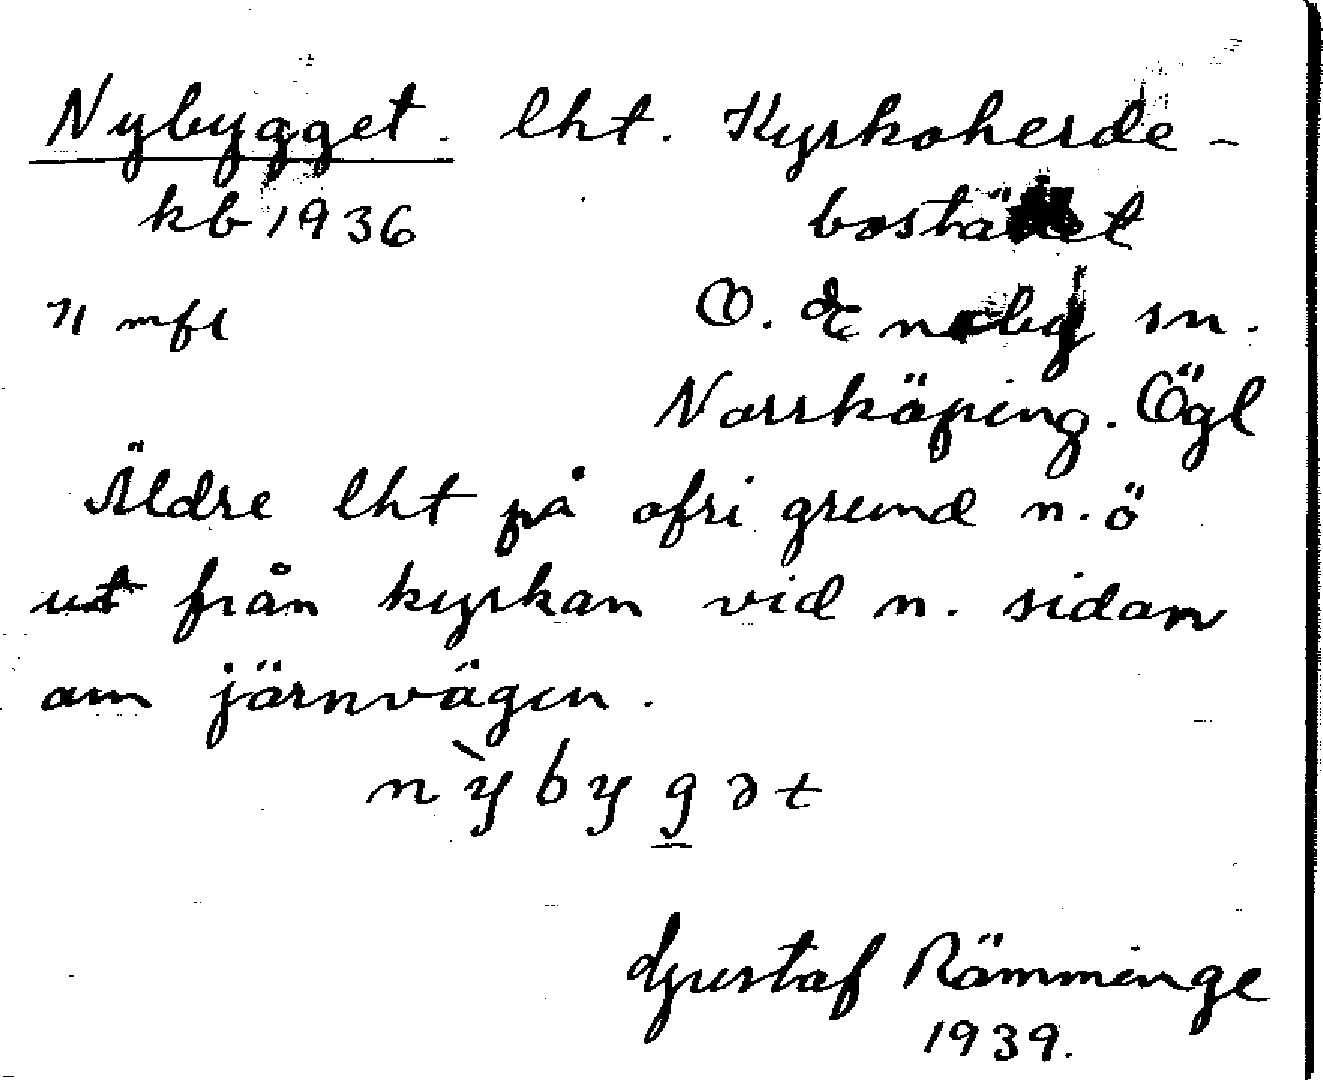 Nybygget. lht. Kyrkoherde-
kb 1936 bostället
71 mfl O. Eneby sn.
Norrköping. Ögl
Äldre lht på ofri grund n.ö
ut från kyrkan vid n. sidan
om järnvägen.
nỳbygət
Gustaf Rämminge
1939.